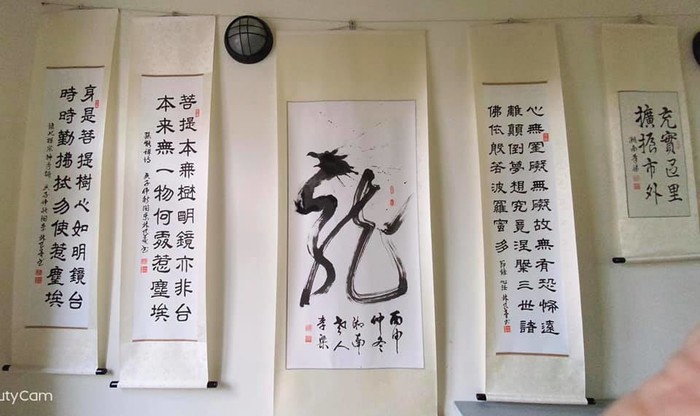 身是菩提樹心如明鏡台
時時勤拂拭勿使惹塵埃
菩提本無樹明鏡亦非台
本来無一物何處惹塵埃
龙
丙申
仲冬
湘南
老人
心無罣礙無礙故無有恐怖遠
離顛倒夢想究竟涅槃三世諸
佛依般若波羅蜜多
充實區里
擴振市外
utyCam